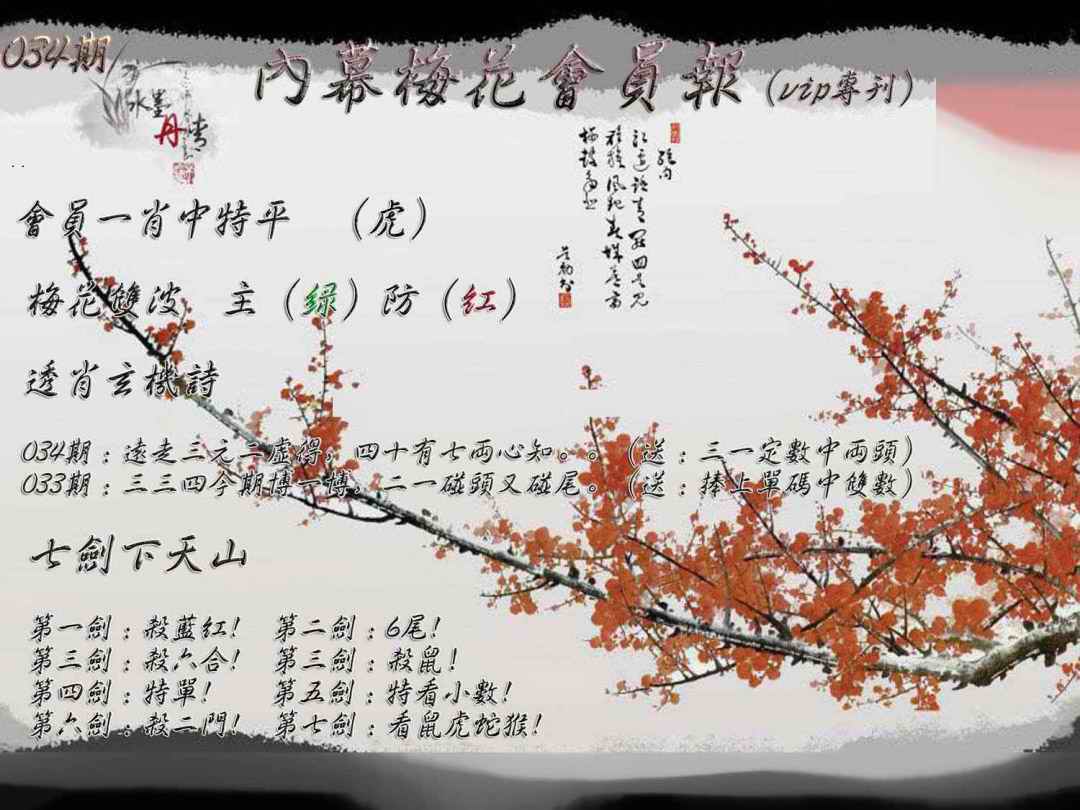 034期
內幕梅花會員報(vip專刊)
水墨
丹青
會員一肖中特平 (虎)
梅花雙波 主(绿)防(红)
透肖玄機詩
034期:遠走三元二虛得,四十有七兩心知。。(送:三一定數中兩頭)
033期:三三四今期博一博。二一碰頭又碰尾。(送:捧上單碼中雙數)
七劍下天山
第一劍:殺藍紅! 第二劍:6尾!
第三劍:殺六合! 第三劍:殺鼠!
第四劍:特單! 第五劍:特看小數!
第六劍:殺二門! 第七劍:看鼠虎蛇猴!